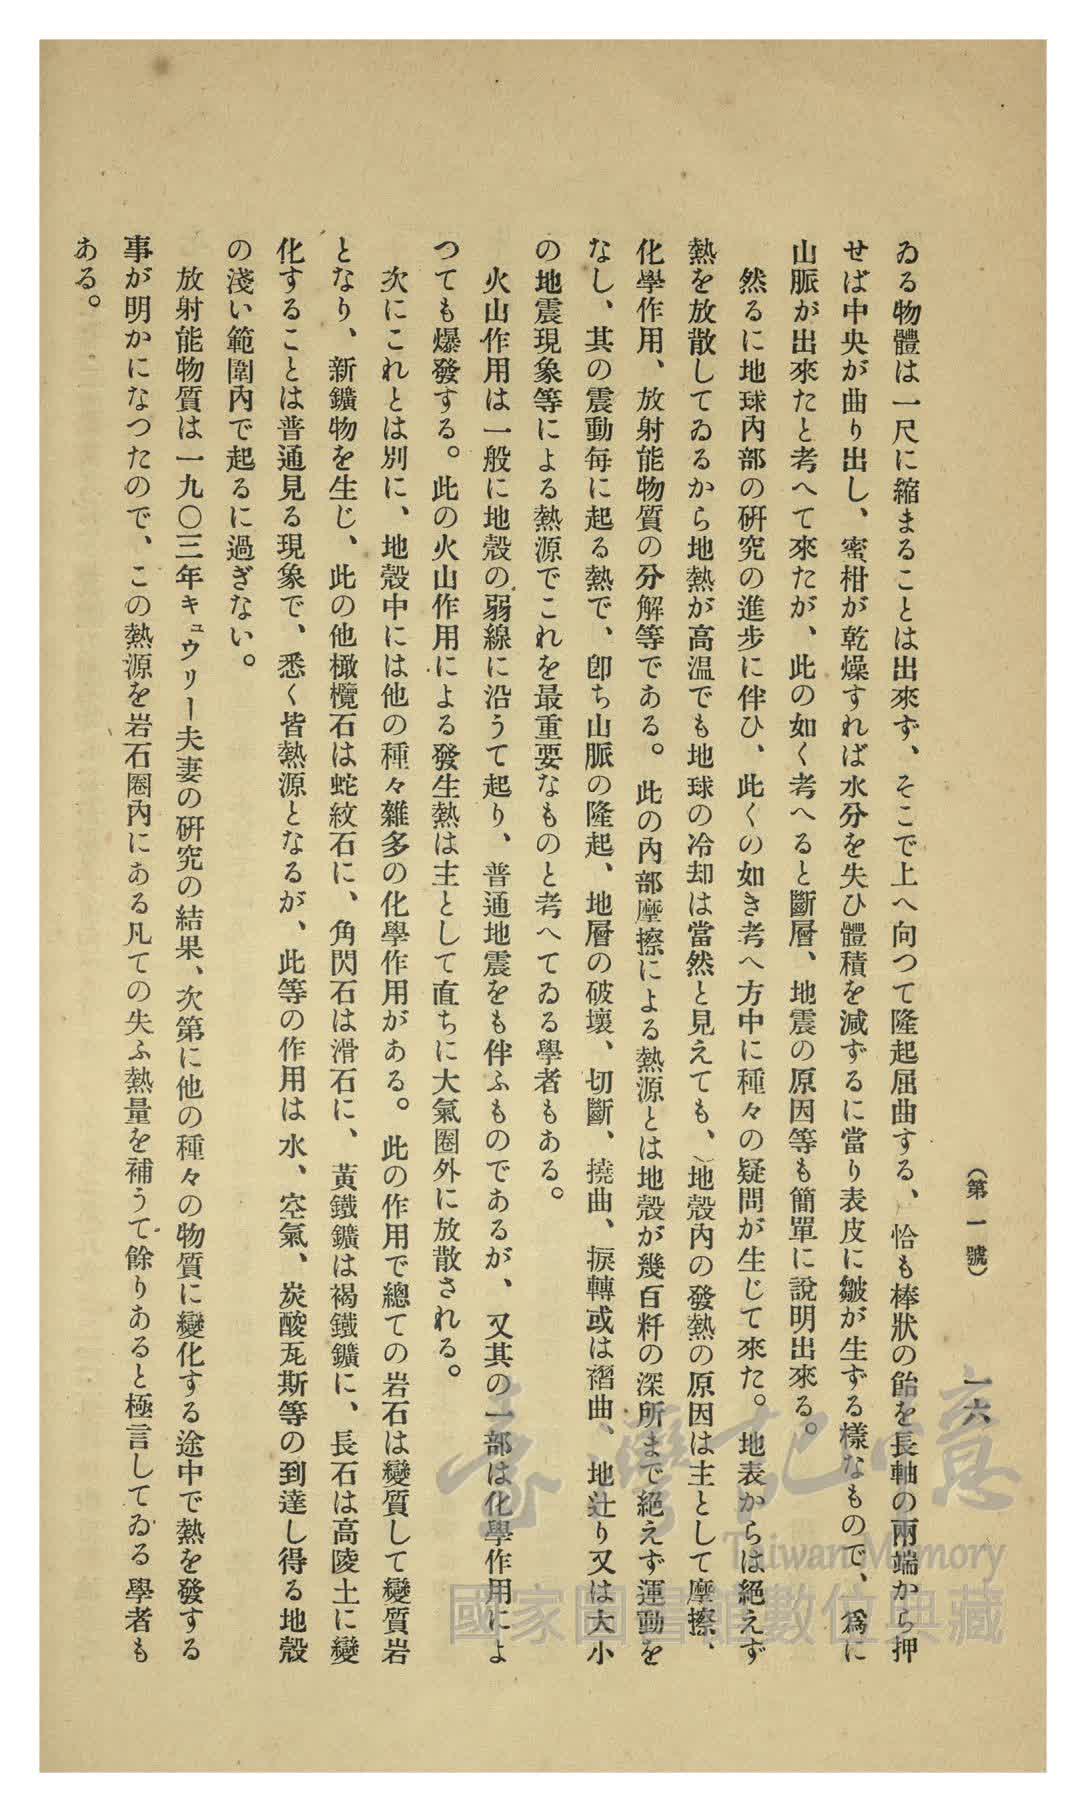 （第一號）
一六
ゐる物體は一尺に縮まることは出來ず、そこで上へ向つて隆起屈曲する、恰も棒狀の飴を長軸の兩端から押
せば中央が曲り出し、蜜柑が乾燥すれば水分を失ひ體積を減ずるに當り表皮に皺が生ずる樣なもので、爲に
山脈が出來たと考へて來たが、此の如く考へると斷層、地震の原因等も簡單に說明出來る。
然るに地球內部の硏究の進步に伴ひ、此くの如き考へ方中に種々の疑問が生じて來た。地表からは絕えず
熱を放散してゐるから地熱が高温でも地球の冷却は當然と見えても、地殼內の發熱の原因は主として摩擦、
化學作用、放射能物質の分解等である。此の內部摩擦による熱源とは地殼が幾百粁の深所まで絕えず運動を
なし、其の震動每に起る熱で、卽ち山脈の隆起、地層の破壞、切斷、撓曲、捩轉或は褶曲、地辷り又は大小
の地震現象等による熱源でこれを最重要なものと考へてゐる學者もある。
火山作用は一般に地殼の弱線に沿うて起り、普通地震をも伴ふものであるが、又其の一部は化學作用によ
つても爆發する。此の火山作用による發生熱は主として直ちに大氣圈外に放散される。
次にこれとは別に、地殼中には他の種々雜多の化學作用がある。此の作用で總ての岩石は變質して變質岩
となり、新鑛物を生じ、此の他橄欖石は蛇紋石に、角閃石は滑石に、黃鐵鑛は褐鐵鑛に、長石は高陵土に變
化することは普通見る現象で、悉く皆熱源となるが、此等の作用は水、空氣、炭酸瓦斯等の到達し得る地殼
の淺い範圍內で起るに過ぎない。
放射能物質は一九〇三年キュウリー夫妻の硏究の結果、次第に他の種々の物質に變化する途中で熱を發する
事が明かになつたので、この熱源を岩石圈內にある凡ての失ふ熱量を補うて餘りあると極言してゐる學者も
ある。
臺灣記憶
Taiwan Memory
國家圖書館數位典藏